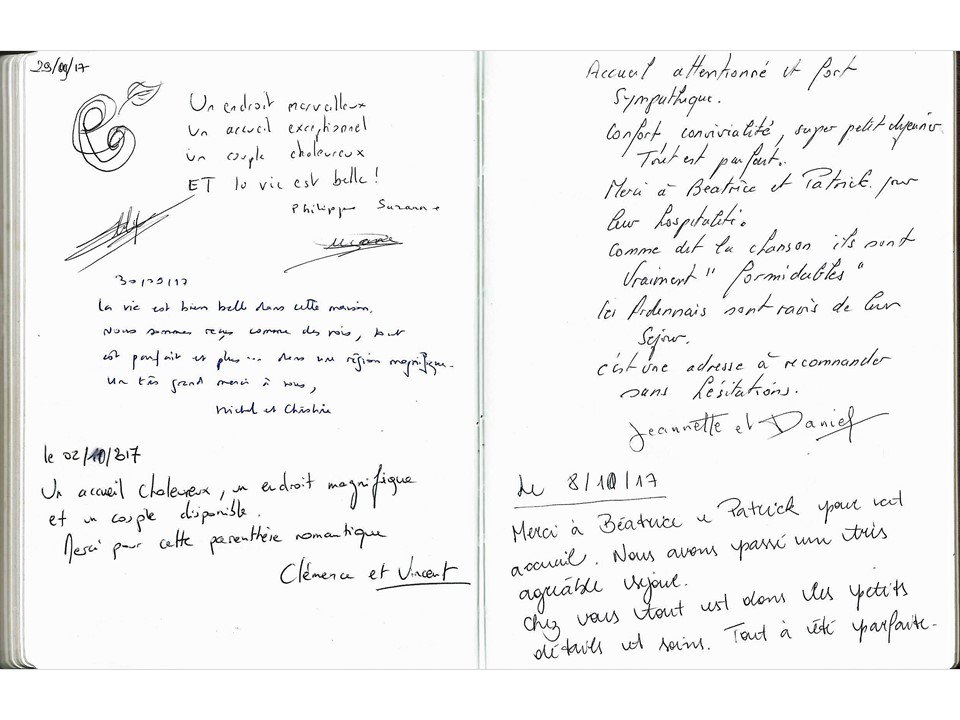 29/09/17
Un endroit merveilleux
Un accueil exceptionnel
un couple chaleureux
ET la vie est belle !
Philippe Suzanne
30/09/17
La vie est bien belle dans cette maison.
Nous sommes reçus comme des rois, tout
est parfait et plus... dans une région magnifique.
Un très grand merci à vous,
Michel et Christine
le 02/10/2017
Un accueil chaleureux, un endroit magnifique
et un couple disponible.
Merci pour cette parenthèse romantique
Clémence et Vincent
Accueil attentionné et fort
Sympathique.
Confort convivialité, super petit déjeuner.
Tout est parfait.
Merci à Béatrice et Patrick pour
leur hospitalité.
Comme dit la chanson ils sont
Vraiment " formidables "
les Ardennais sont ravis de leur
Séjour.
c'est une adresse à recommander
sans hésitations.
Jeannette et Daniel
Le 8/10/17
Merci à Béatrice et Patrick pour cet
accueil. Nous avons passé un très
agréable séjour.
Chez vous tout est dans les petits
détails et soins. Tout a été parfait.